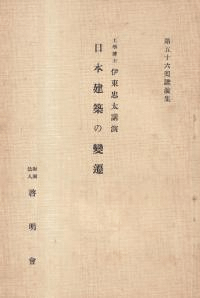 第五十六回講演集
工學博士 伊東忠太講演
日本建築の變遷
財團法人 啓明會